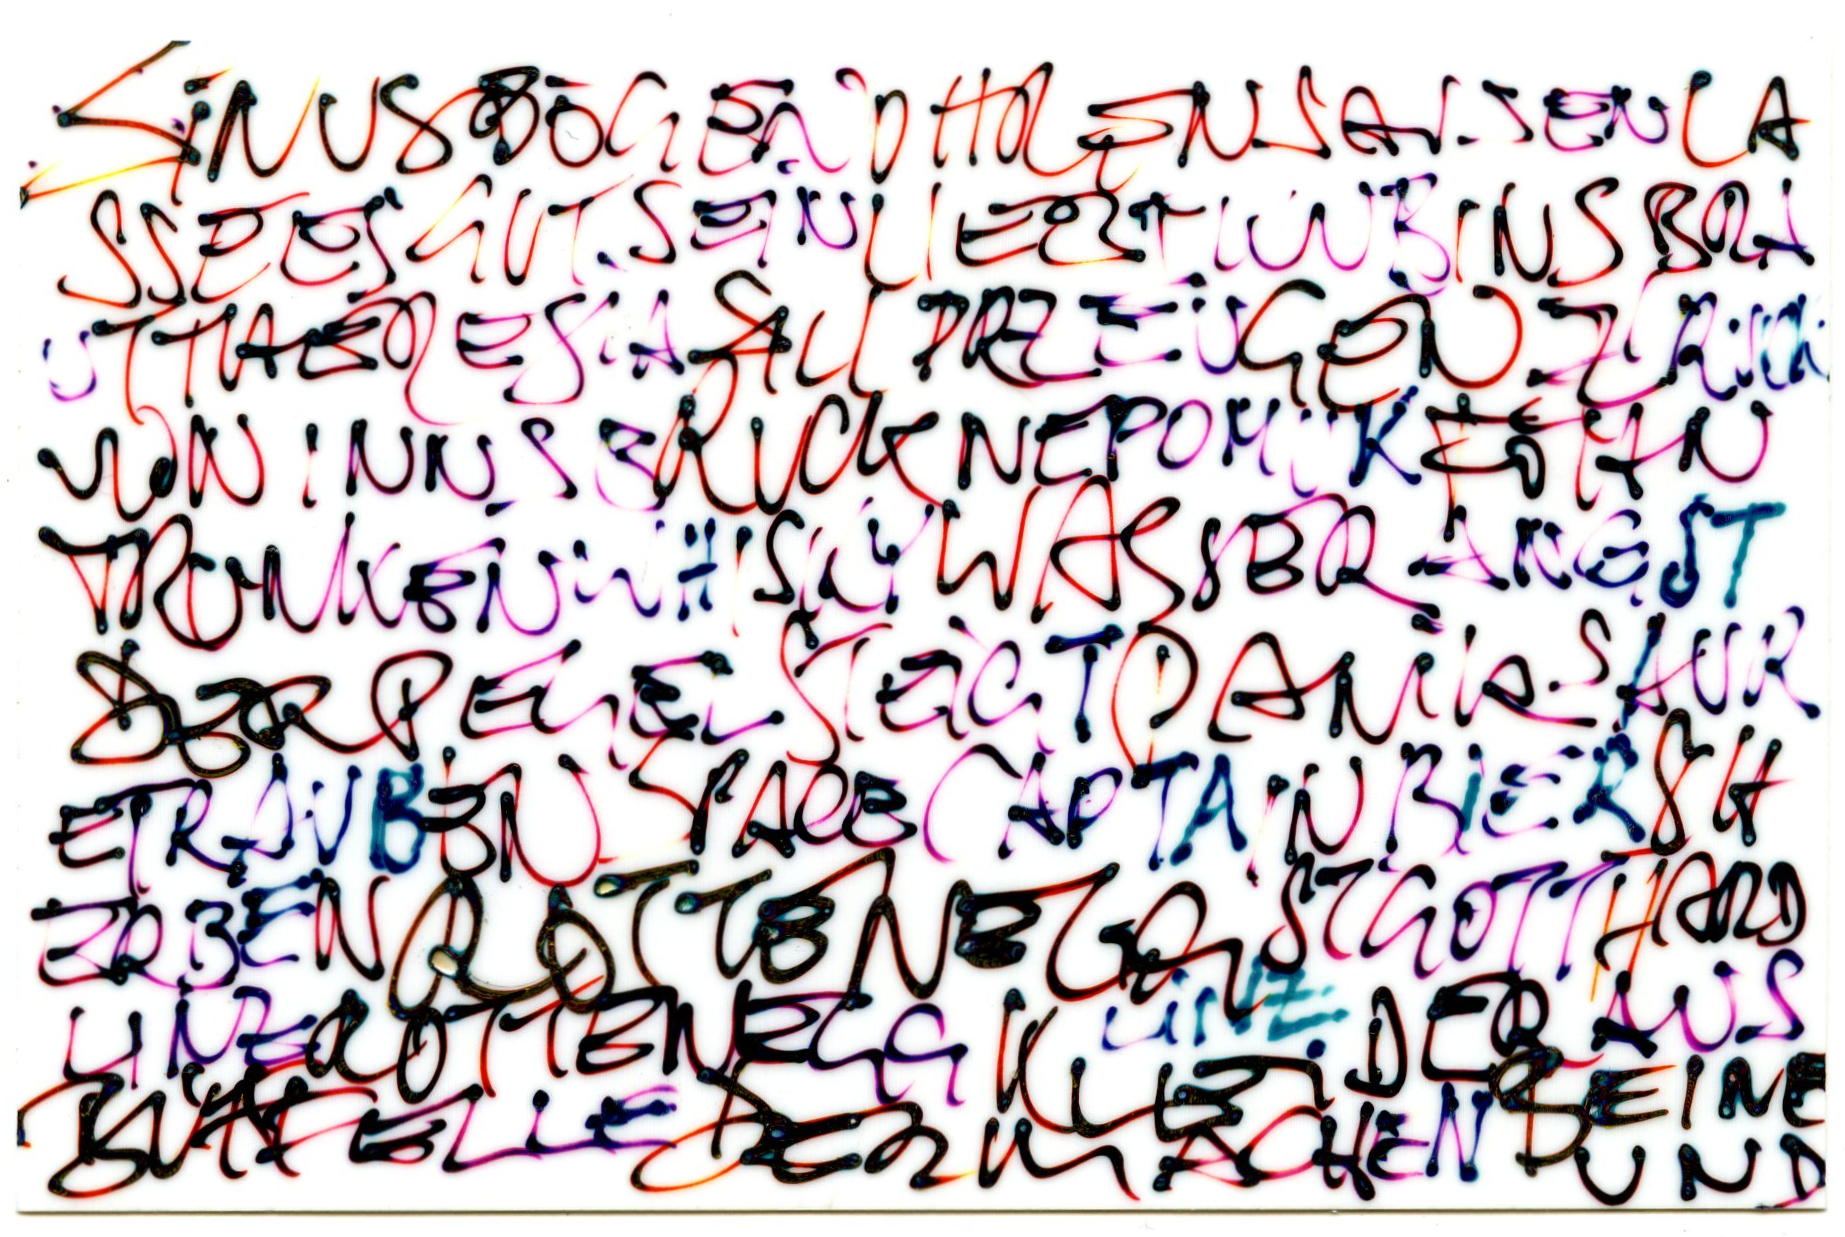 SINUSBÖGEN D HOLEN SASSEN LA
SSEES GUT SEIN LIEZT INNSBRA
UT THAERESIA SALLDRZEUGEN ZURÜCK
VON INNSBRUCK NEPOMUK ETAN
TRUNKEN WHISKY WASSER ANGST
DER PEGEL STEIGT PANIK SAUR
E TRAUBEN SPACE CAPTAIN BIER SCH
ERBEN ROTTENEGG ST GOTTHARD
LINZ ROTTENEGG LINZ KLEIDER AUS
BÜFFELLEDER MACHEN BEINE
UND